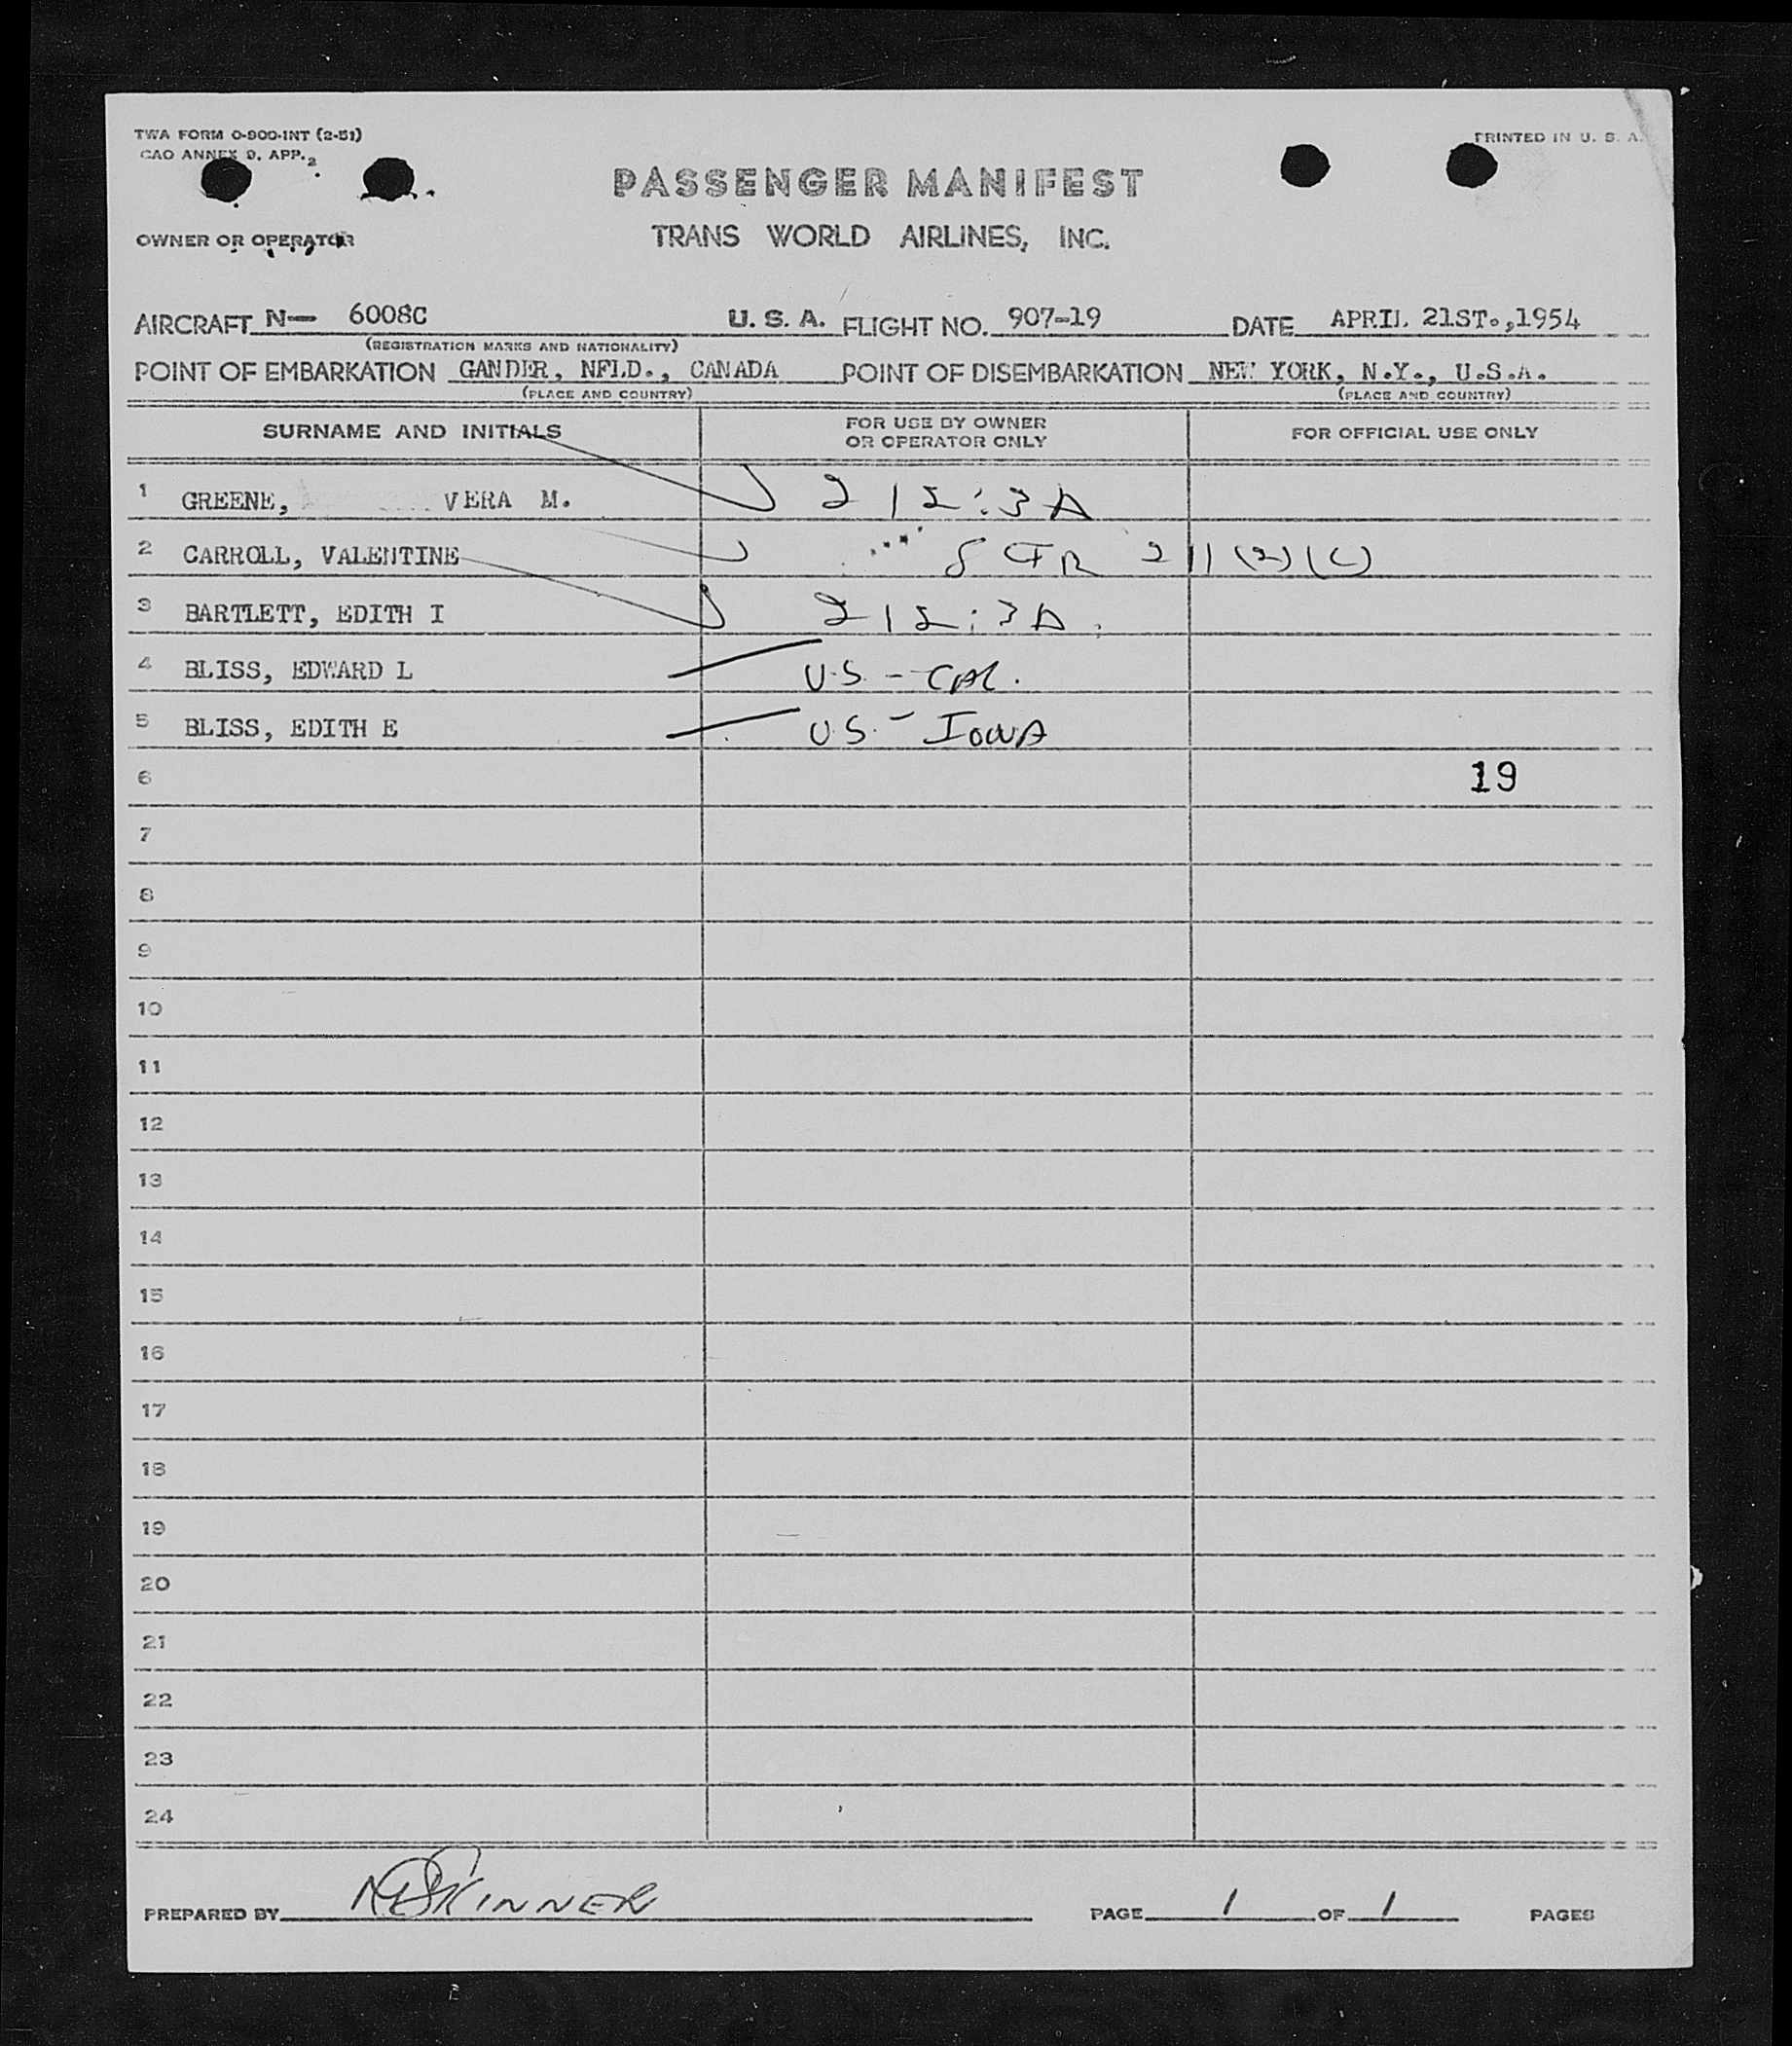 TWA FORM O-900-INT (2-51)
PRINTED IN U. S. A.
CAO ANNEX 9, APP. 2
PASSENGER MANIFEST
OWNER OR OPERATOR
TRANS WORLD AIRLINES, INC.
AIRCRAFT N— 6008C U. S. A. FLIGHT NO. 907-19 DATE APRIL 21ST.,1954
(REGISTRATION MARKS AND NATIONALITY)
POINT OF EMBARKATION GANDER, NFLD., CANADA POINT OF DISEMBARKATION NEW YORK, N.Y., U.S.A.
(PLACE AND COUNTRY) (PLACE AND COUNTRY)
SURNAME AND INITIALS FOR USE BY OWNER OR OPERATOR ONLY FOR OFFICIAL USE ONLY
1 GREENE, VERA M. 212:3A
2 CARROLL, VALENTINE 8 CFR 211(2)(C)
3 BARTLETT, EDITH I 212:3A
4 BLISS, EDWARD L U.S. - CAL.
5 BLISS, EDITH E U.S. - IOWA
6 19
7
8
9
10
11
12
13
14
15
16
17
18
19
20
21
22
23
24
PREPARED BY SKINNER PAGE 1 OF 1 PAGES